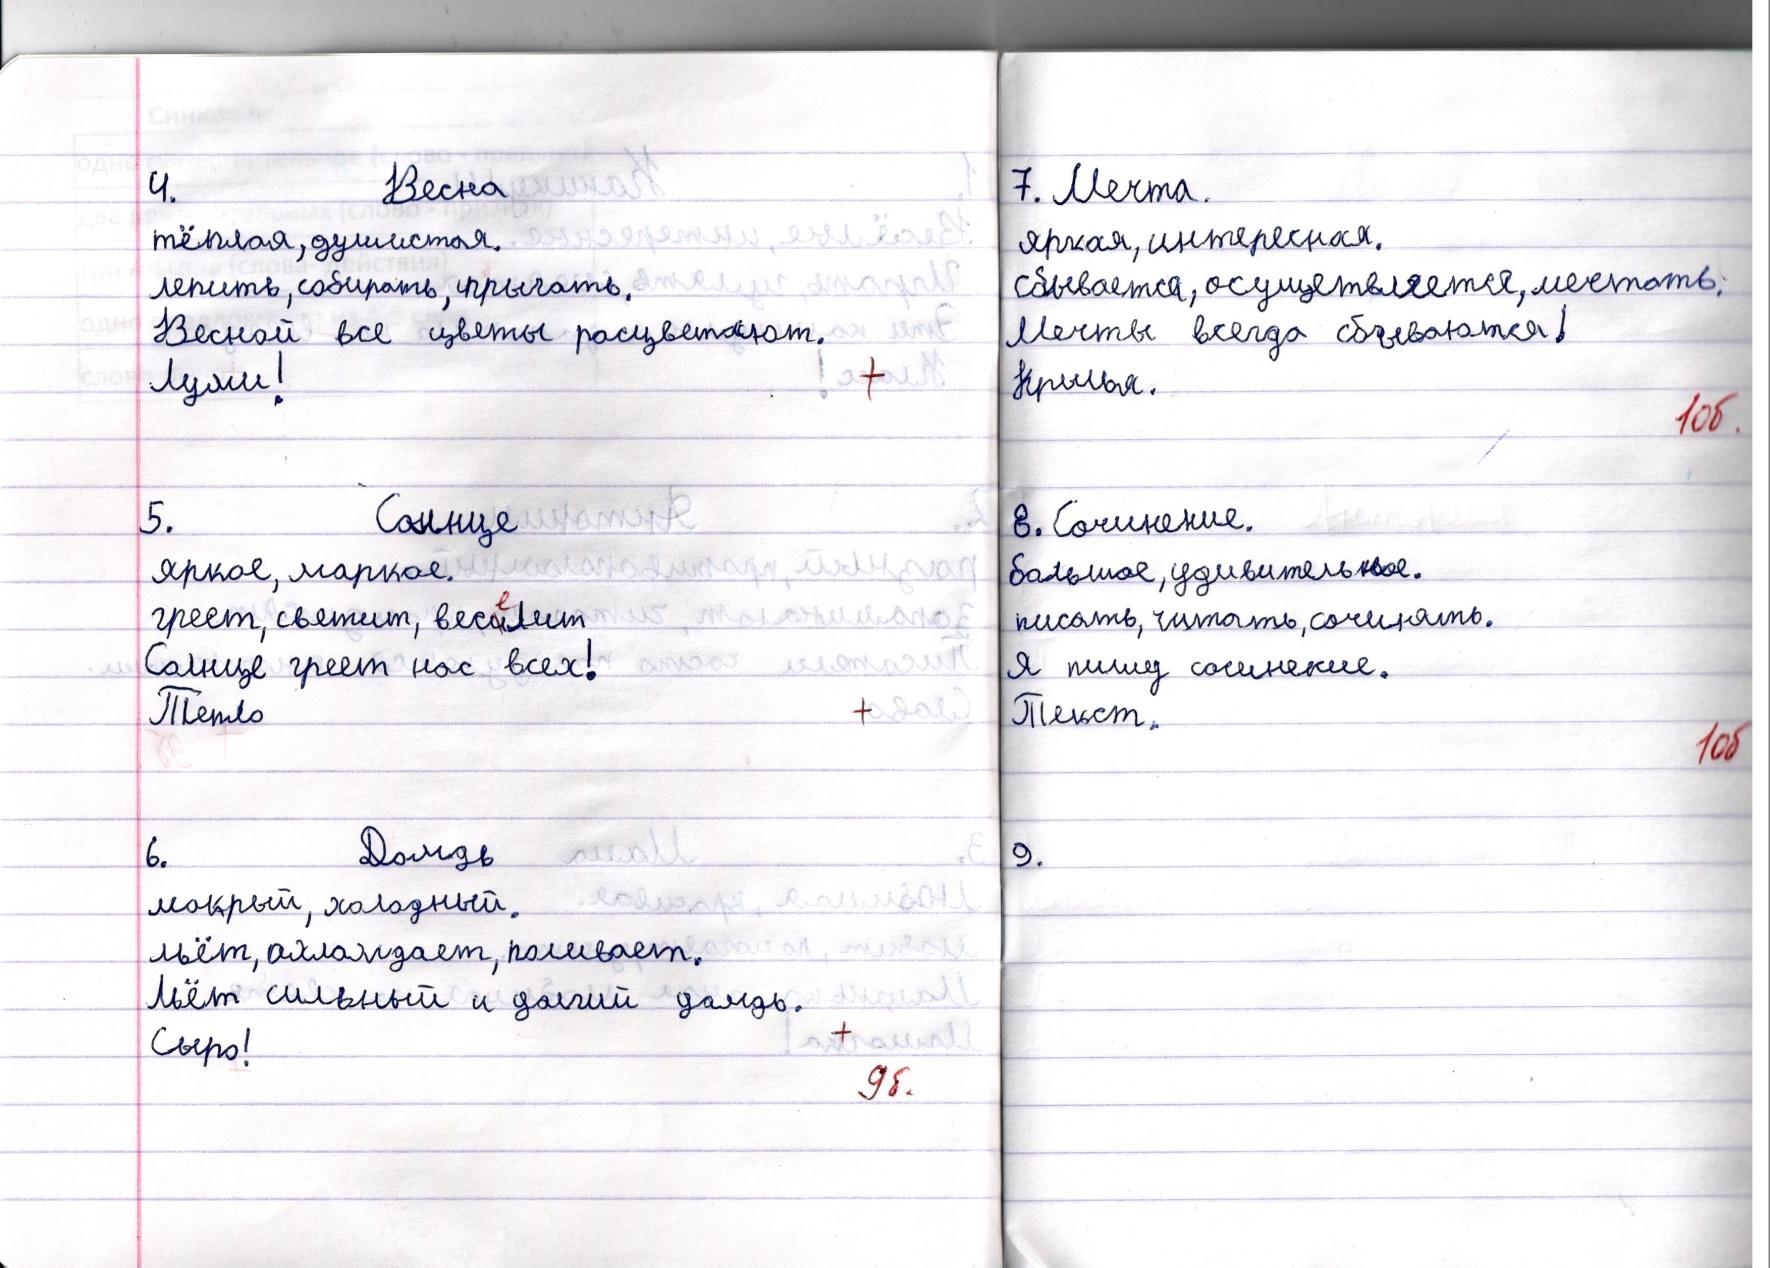 4. Весна
тёплая, душистая.
лепить, собирать, прыгать.
Весной все цветы расцветают.
Лужи!
+
5. Солнце
яркое, маркое.
греет, светит, веселит
Солнце греет нас всех!
Тепло
+
6. Дождь
мокрый, холодный.
льёт, охлаждает, поливает.
Льёт сильный и долгий дождь.
Сыро!
+
9б.
7. Мечта.
яркая, интересная.
сбывается, осуществляется, мечтать.
Мечты всегда сбываются!
Крылья.
10б.
8. Сочинение.
большое, удивительное.
писать, читать, сочинять.
Я пишу сочинение.
Текст.
10б
9.